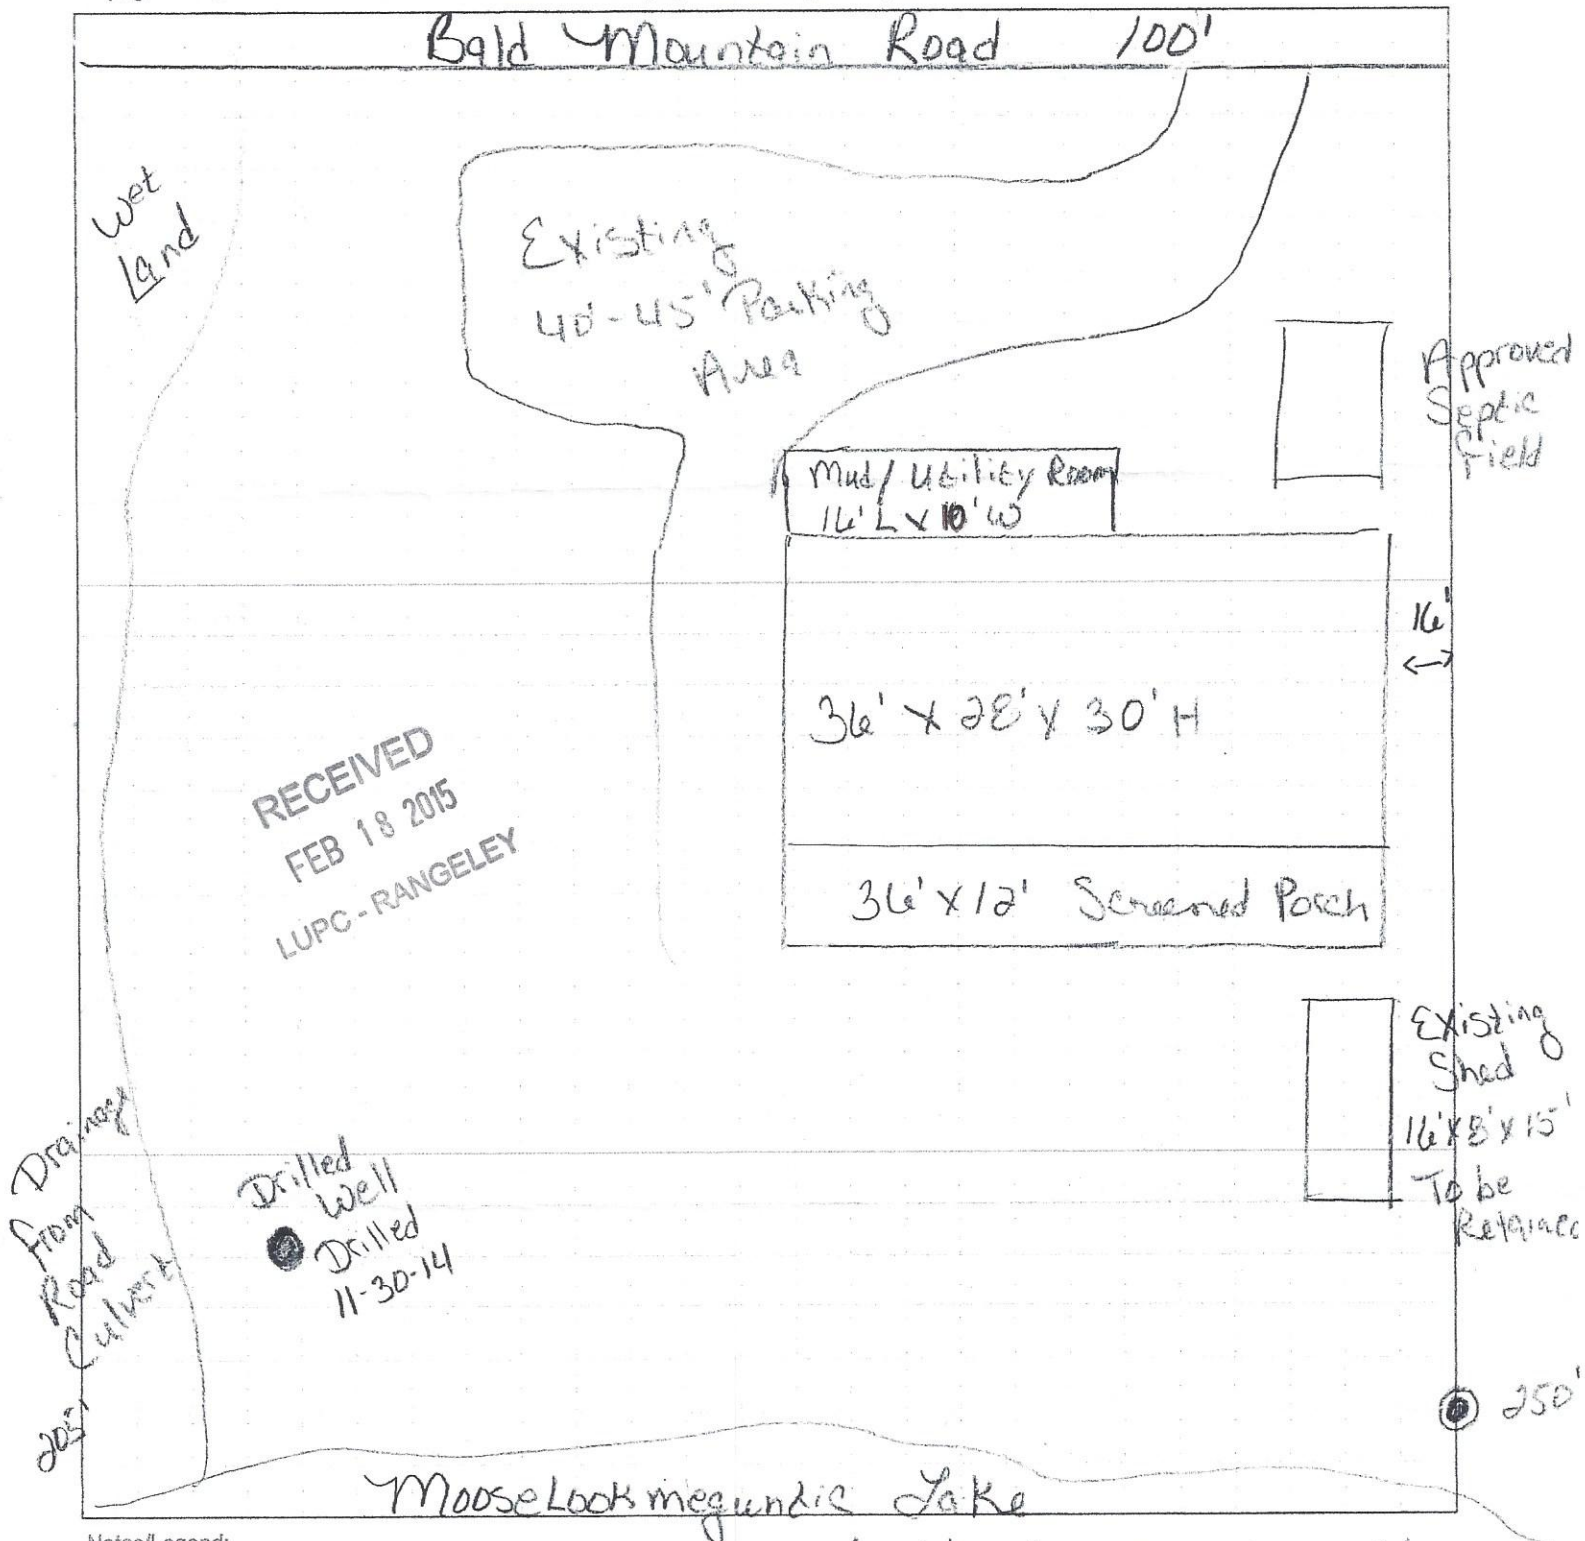 Bald Mountain Road 100'
Wet
Land
Existing
40'-45' Parking
Area
Approved
Septic
Field
Mud/Utility Room
16' L x 10' W
16'
36' x 28' x 30' H
RECEIVED
FEB 18 2015
LUPC - RANGELEY
36' x 12' Screened Porch
Existing
Shed
16' x 8' x 15'
To be
Drainage
From
Road
Culvert
Drilled
Well
Drilled
11-30-14
205'
250'
MooseLookmeguntic Lake
Notes/Legend: